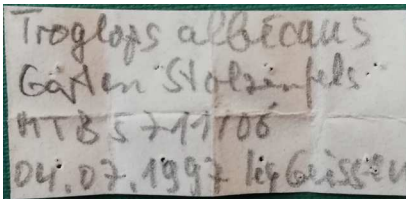 Troglops albicans
Garten Stolzenfels
MTB 5711/06
04.07.1997 leg Geissen